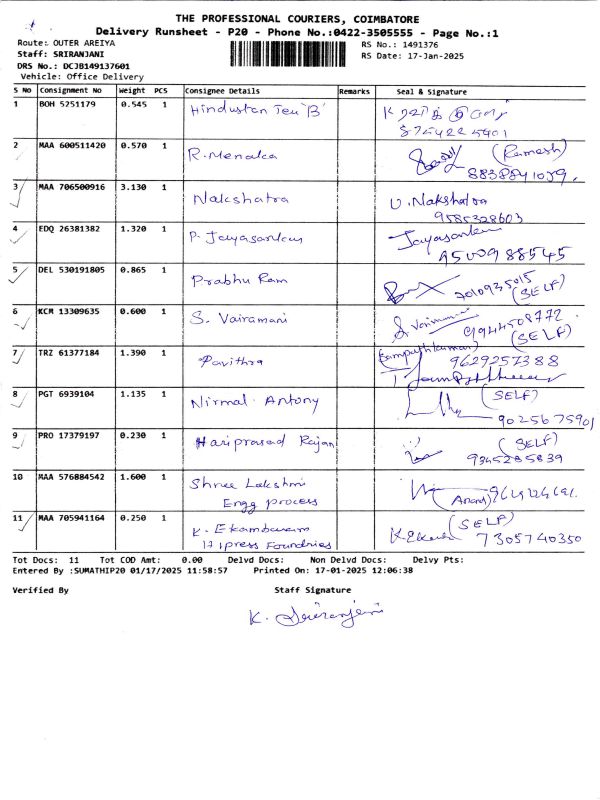 THE PROFESSIONAL COURIERS, COIMBATORE
Delivery Runsheet - P20 - Phone No.:0422-3505555 - Page No.:1
Route: OUTER AREIYA
RS No.: 1491376
Staff: SRIRANJANI
RS Date: 17-Jan-2025
DRS No.: DCJB149137601
Vehicle: Office Delivery
S No Consignment No Weight PCS Consignee Details Remarks Seal & Signature
1 BOH 5251179 0.545 1 Hindustan
2 MAA 600511420 0.570 1 R. Menaka (Ramesh)
8838841059
3 MAA 706500916 3.130 1 Nakshatra U. Nakshatra
9585328603
4 EDQ 26381382 1.320 1 P. Jayasankar Jayasankar
9500988545
5 DEL 530191805 0.865 1 Prabhu Ram 7010935015
(SELF)
6 KCM 13309635 0.600 1 S. Vairamani 9944508772
(SELF)
7 TRZ 61377184 1.390 1 Pavithra (Sampathkumar)
9629257388
8 PGT 6939104 1.135 1 Nirmal Antony (SELF)
9025675901
9 PRO 17379197 0.230 1 Hariprasad Rajan (SELF)
9345285839
10 MAA 576884542 1.600 1 Shree Lakshmi
Engg process (Anand)
11 MAA 705941164 0.250 1 K. Ekambaram (SELF)
Foundries 7305740350
Tot Docs: 11 Tot COD Amt: 0.00 Delvd Docs: Non Delvd Docs: Delvy Pts:
Entered By :SUMATHIP20 01/17/2025 11:58:57 Printed On: 17-01-2025 12:06:38
Verified By Staff Signature
K. Sriranjani